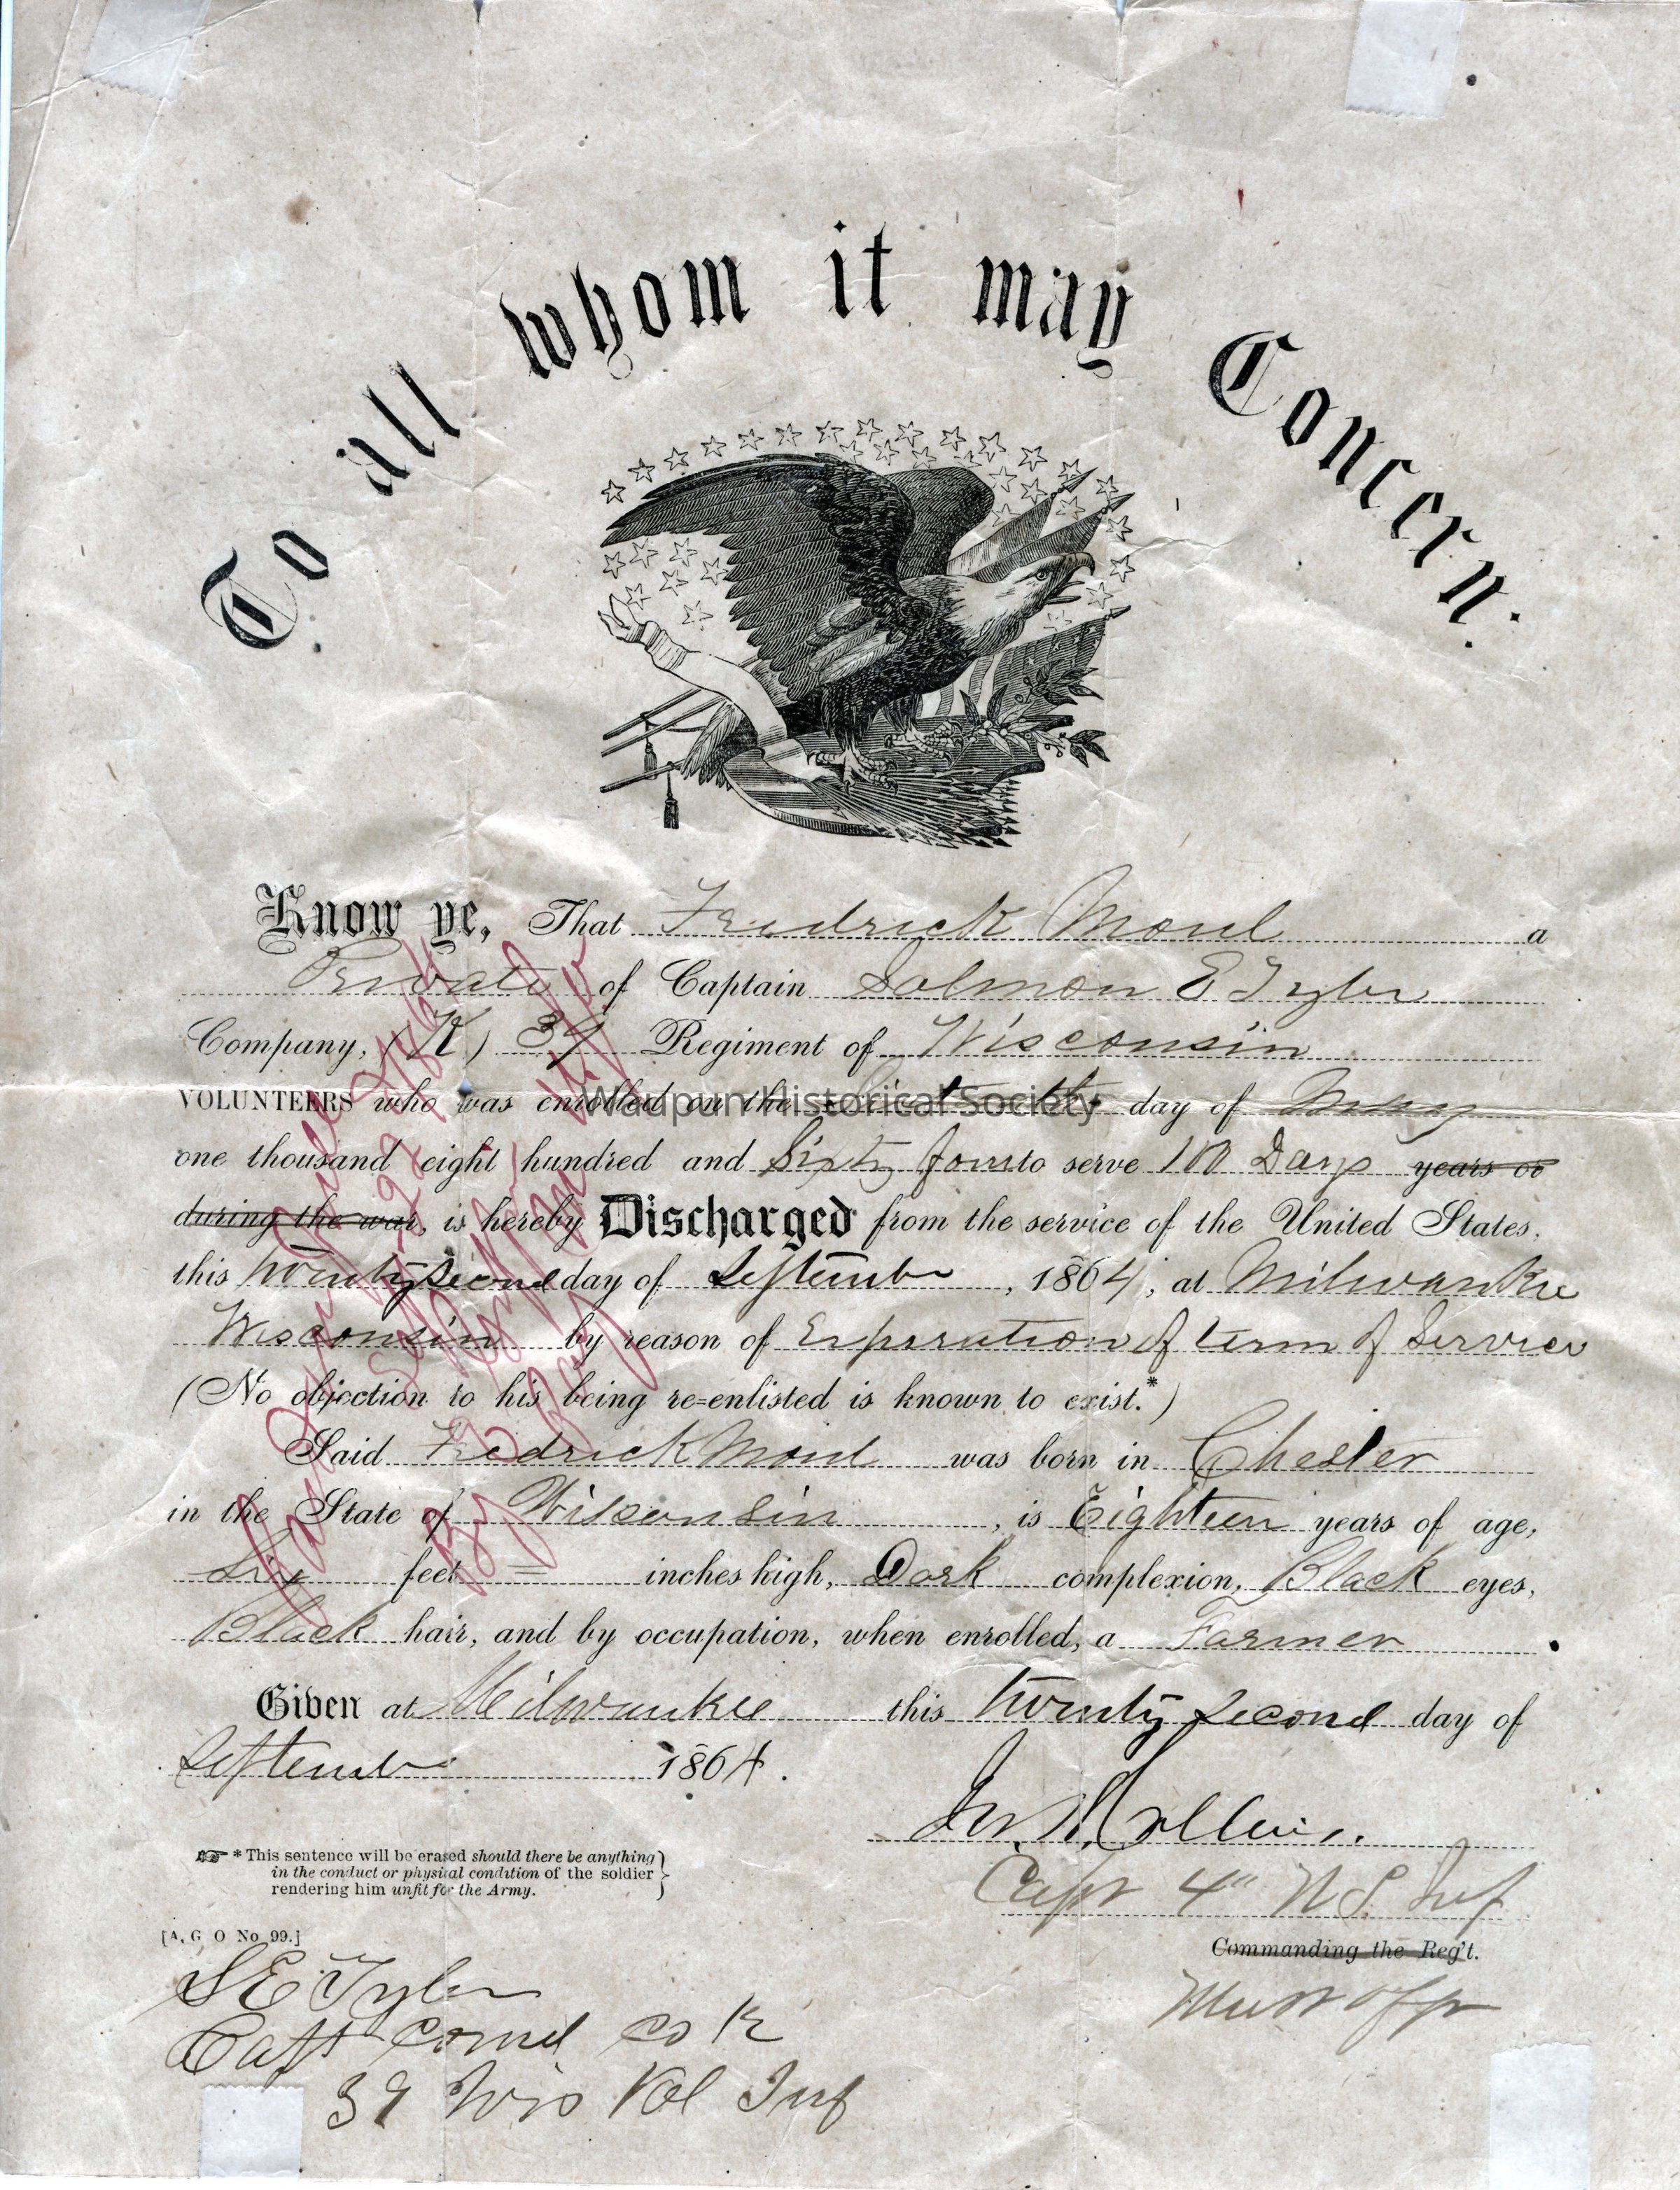 To all whom it may Concern:
Know ye, That Fredrick Moul a
Private of Captain Salmon E Tyler
Company, (K) 39 Regiment of Wisconsin
VOLUNTEERS who was enrolled on the day of May
Waupun Historical Society
one thousand eight hundred and Sixty four to serve 100 Days years or
during the war, is hereby Discharged from the service of the United States,
this twenty second day of September, 1864, at Milwaukee
Wisconsin by reason of Expiration of term of Service
(No objection to his being re=enlisted is known to exist.*)
Said Fredrick Moul was born in Chester
in the State of Wisconsin, is Eighteen years of age,
Six feet = inches high, Dark complexion, Black eyes,
Black hair, and by occupation, when enrolled, a Farmer.
Given at Milwaukee this twenty second day of
September 1864.
Collins.
Capt 4" U S. Inf
Commanding the Reg't.
Must offr
* This sentence will be erased should there be anything
in the conduct or physical condition of the soldier
rendering him unfit for the Army.
[A, G O No 99.]
S E Tyler
Capt Comd Co K
39 Wis Vol Inf